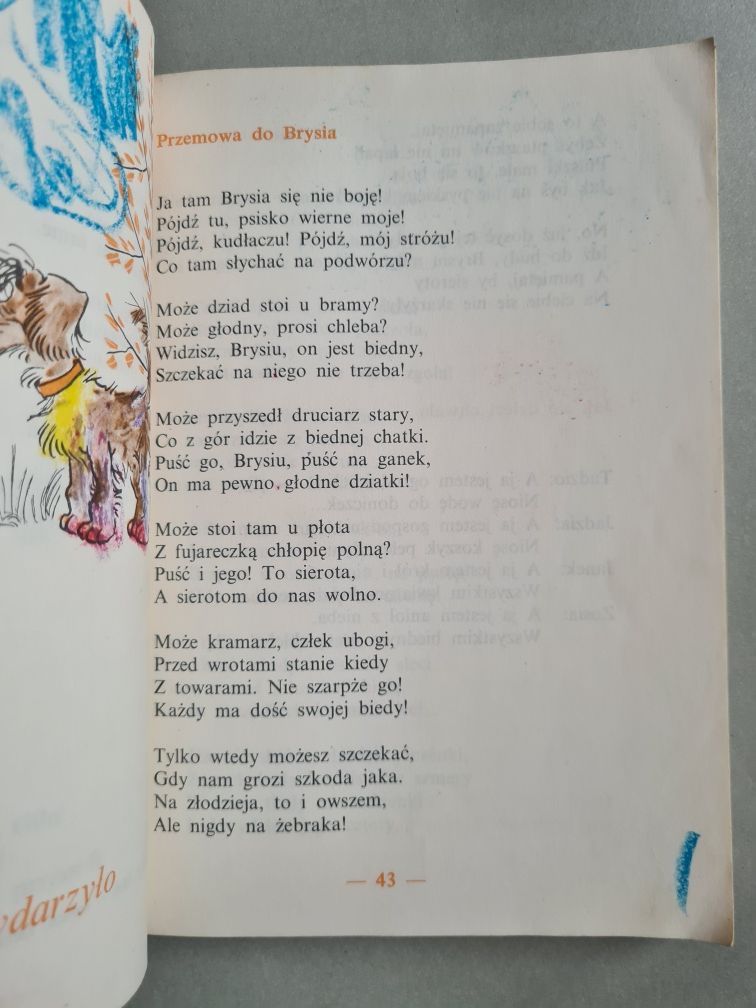 Przemowa do Brysia
Ja tam Brysia się nie boję!
Pójdź tu, psisko wierne moje!
Pójdź, kudłaczu! Pójdź, mój stróżu!
Co tam słychać na podwórzu?
Może dziad stoi u bramy?
Może głodny, prosi chleba?
Widzisz, Brysiu, on jest biedny,
Szczekać na niego nie trzeba!
Może przyszedł druciarz stary,
Co z gór idzie z biednej chatki.
Puść go, Brysiu, puść na ganek,
On ma pewno głodne dziatki!
Może stoi tam u płota
Z fujareczką chłopię polną?
Puść i jego! To sierota,
A sierotom do nas wolno.
Może kramarz, człek ubogi,
Przed wrotami stanie kiedy
Z towarami. Nie szarpże go!
Każdy ma dość swojej biedy!
Tylko wtedy możesz szczekać,
Gdy nam grozi szkoda jaka.
Na złodzieja, to i owszem,
Ale nigdy na żebraka!
— 43 —
ydarzyło